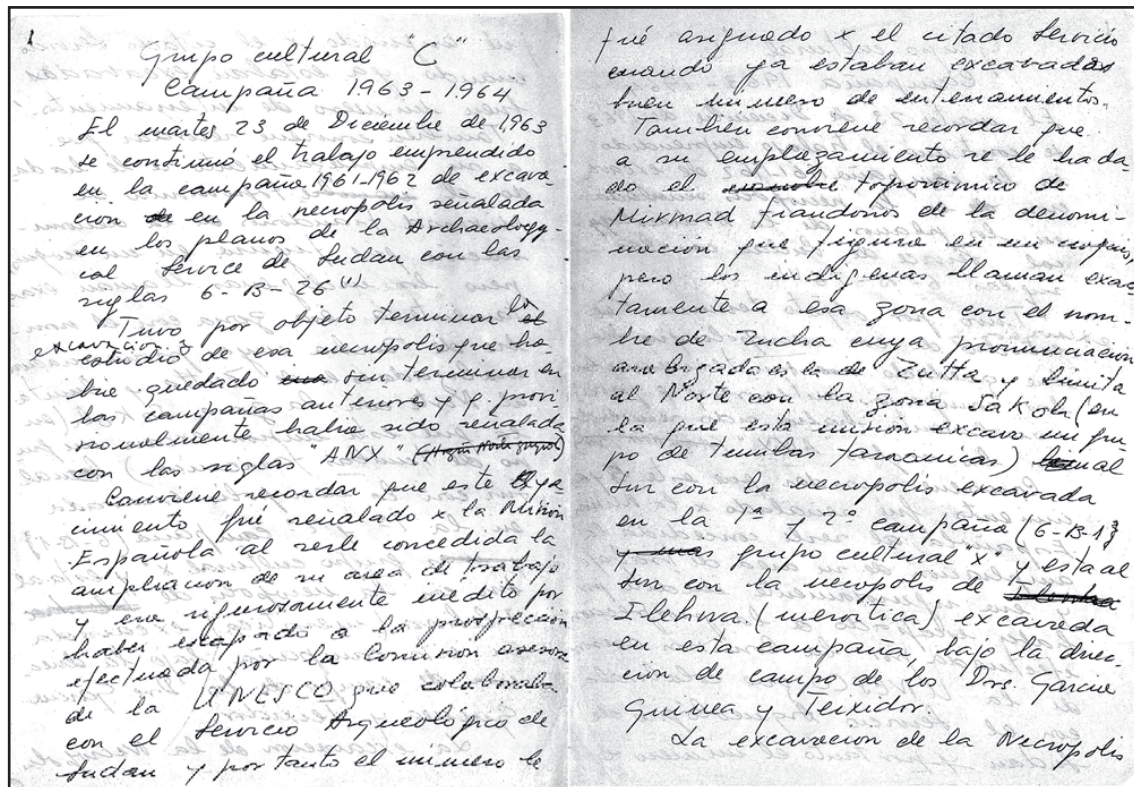 1
Grupo cultural "C"
Campaña 1963-1964
El martes 23 de Diciembre de 1,963
se continuó el trabajo emprendido
en la campaña 1961-1962 de excava-
ción de en la necropolis señalada
en los planos de la Archaeology-
cal Service de Sudan con las
siglas 6-B-26 (1)
Tuvo por objeto terminar la el
excavacion y
estudio de esa necropolis que ha-
bia quedado sin terminar en
las campañas anteriores y q. provi
sionalmente habia sido señalada
con las siglas "ANX"
Conviene recordar que este ya-
cimiento fué señalado x la Misión
Española al serle concedida la
ampliacion de su area de trabajo
y era rigurosamente inedito por
haber escapado a la prospección
efectuada por la Comision asesora
de la UNESCO que colaboraba
con el Servicio Arqueológico de
Sudan y por tanto el número le
fué asignado x el citado Servicio
cuando ya estaban excavadas
buen número de enterramientos.
Tambien conviene recordar que
a su emplazamiento se le ha da-
do el toponimico de
Mirmad fiandonos de la denomi-
nación que figura en un croquis,
pero los indigenas llaman exac-
tamente a esa zona con el nom-
bre de Zucha cuya pronunciación
arabizada es la de Zutta y limita
al Norte con la zona Sakoh (en
la que esta misión excavo un gru-
po de tumbas faraonicas) al
Sur con la necropolis excavada
en la 1ª y 2ª campaña (6-B-13
y mas grupo cultural "X" y esta al
Sur con la necropolis de
Ilehwa. (meroitica) excavada
en esta campaña, bajo la direc-
cion de campo de los Drs. Garcia
Guinea y Teixidor.
La excavacion de la Necropolis